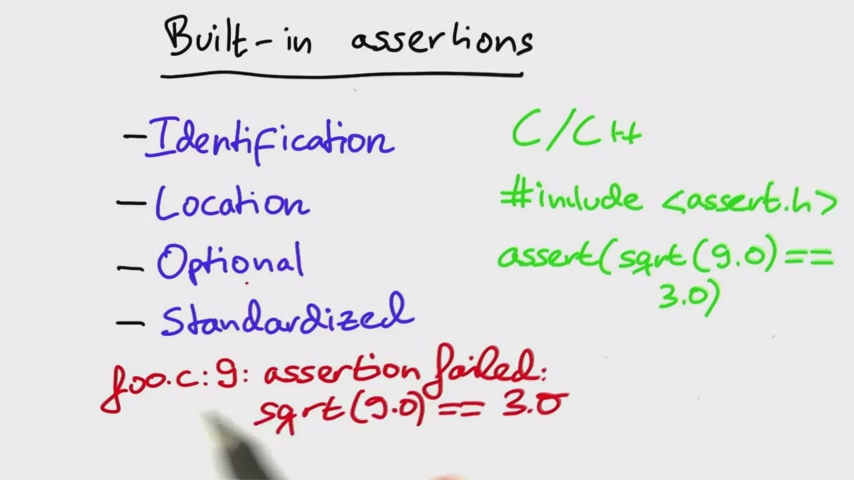 Built-in assertions
- Identification
- Location
- Optional
- Standardized
C/C++
#include <assert.h>
assert(sqrt(9.0)==
3.0)
foo.c:9: assertion failed:
sqrt(9.0) == 3.0